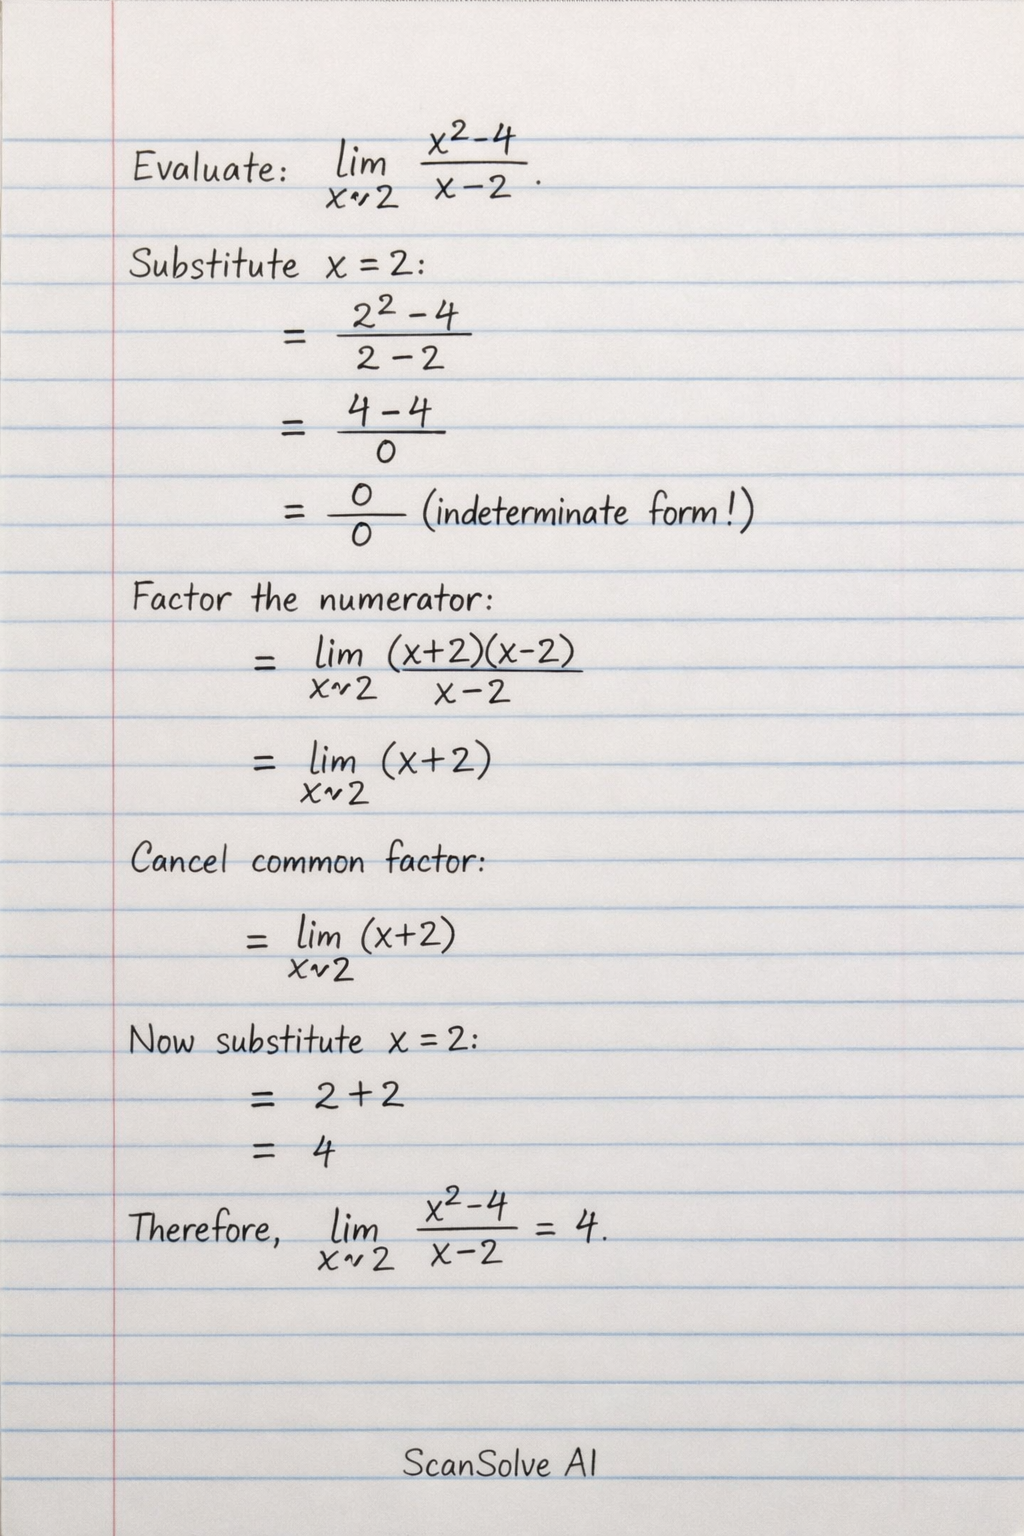 Evaluate: lim x~2 (x²-4)/(x-2).
Substitute x = 2:
= (2² - 4)/(2 - 2)
= (4 - 4)/0
= 0/0 (indeterminate form!)
Factor the numerator:
= lim x~2 (x+2)(x-2)/(x-2)
= lim x~2 (x+2)
Cancel common factor:
= lim x~2 (x+2)
Now substitute x = 2:
= 2+2
= 4
Therefore, lim x~2 (x²-4)/(x-2) = 4.
ScanSolve AI